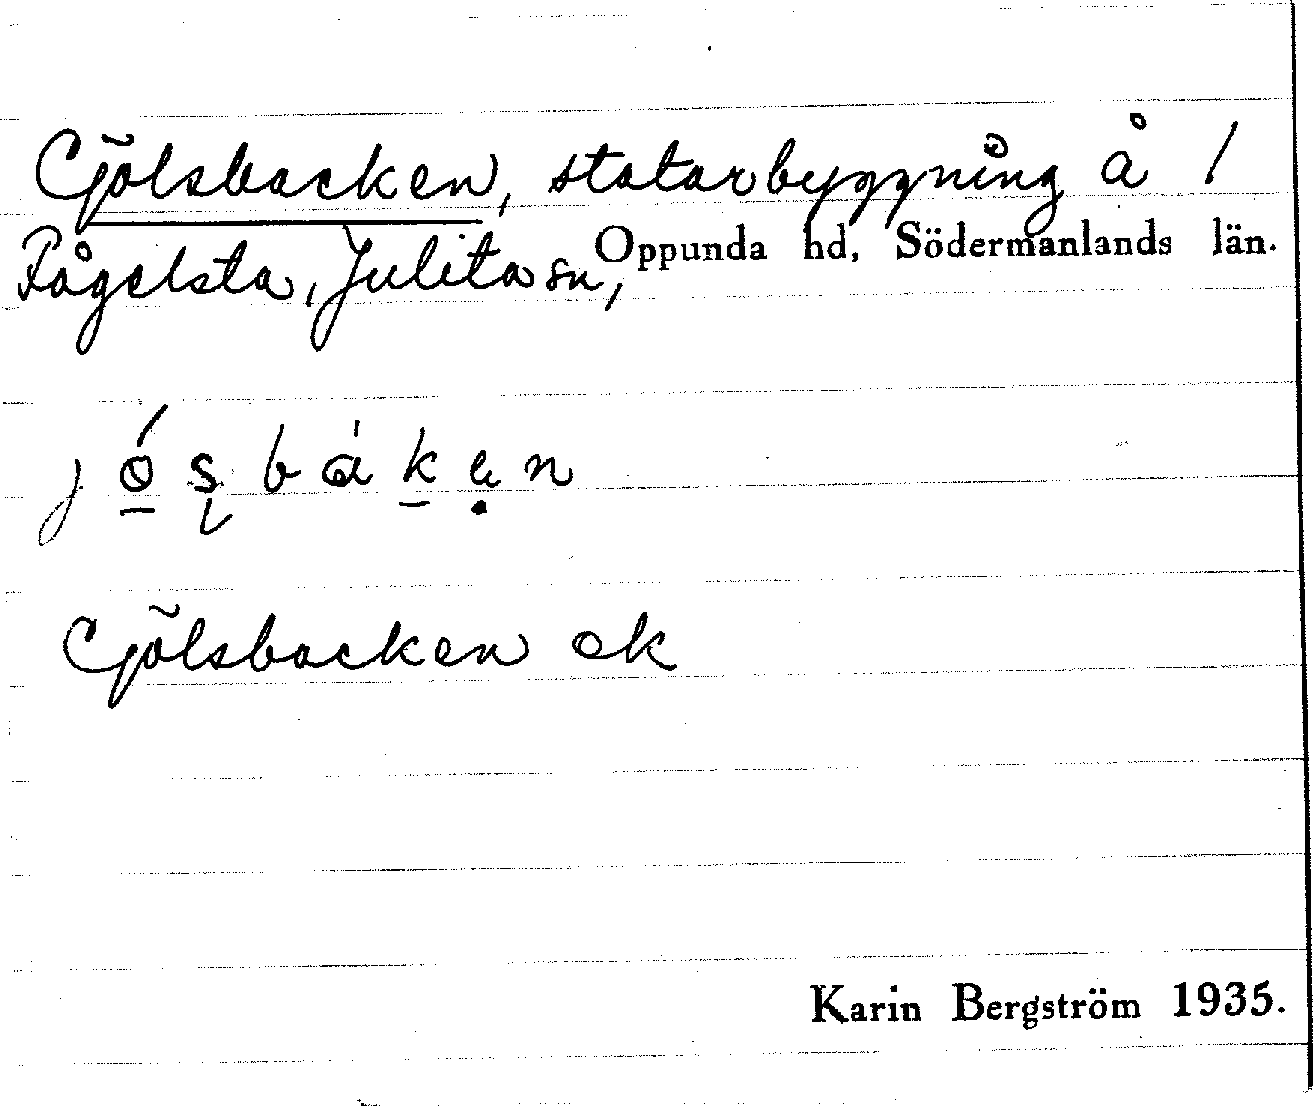 Gjölsbacken, statarbyggning å 1
Fågelsta, Julita sn, Oppunda hd, Södermanlands län.
j ǿ̱ ş b à ḵ ẹ n
Gjölsbacken ek
Karin Bergström 1935.